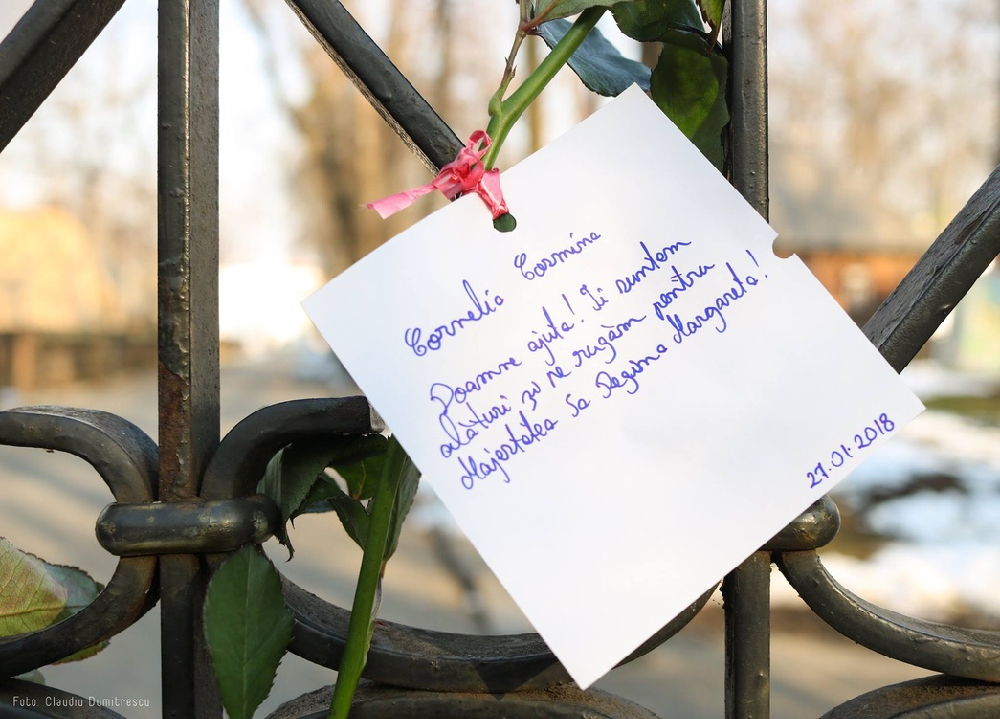 Cornelia Cosmina
Doamne ajuta! Ii suntem
alături și ne rugăm pentru
Majestatea Sa Regina Margareta!
27.01.2018
Foto: Claudiu Dumitrescu